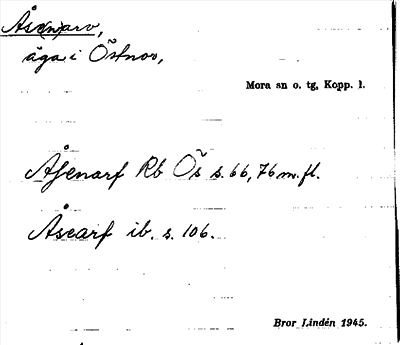 Åse(n)arv,
äga i Östnor,
Mora sn o. tg, Kopp. l.
Åsenarf Rb Ös s. 66, 76 m. fl.
Åsearf ib. s. 106.
Bror Lindén 1945.